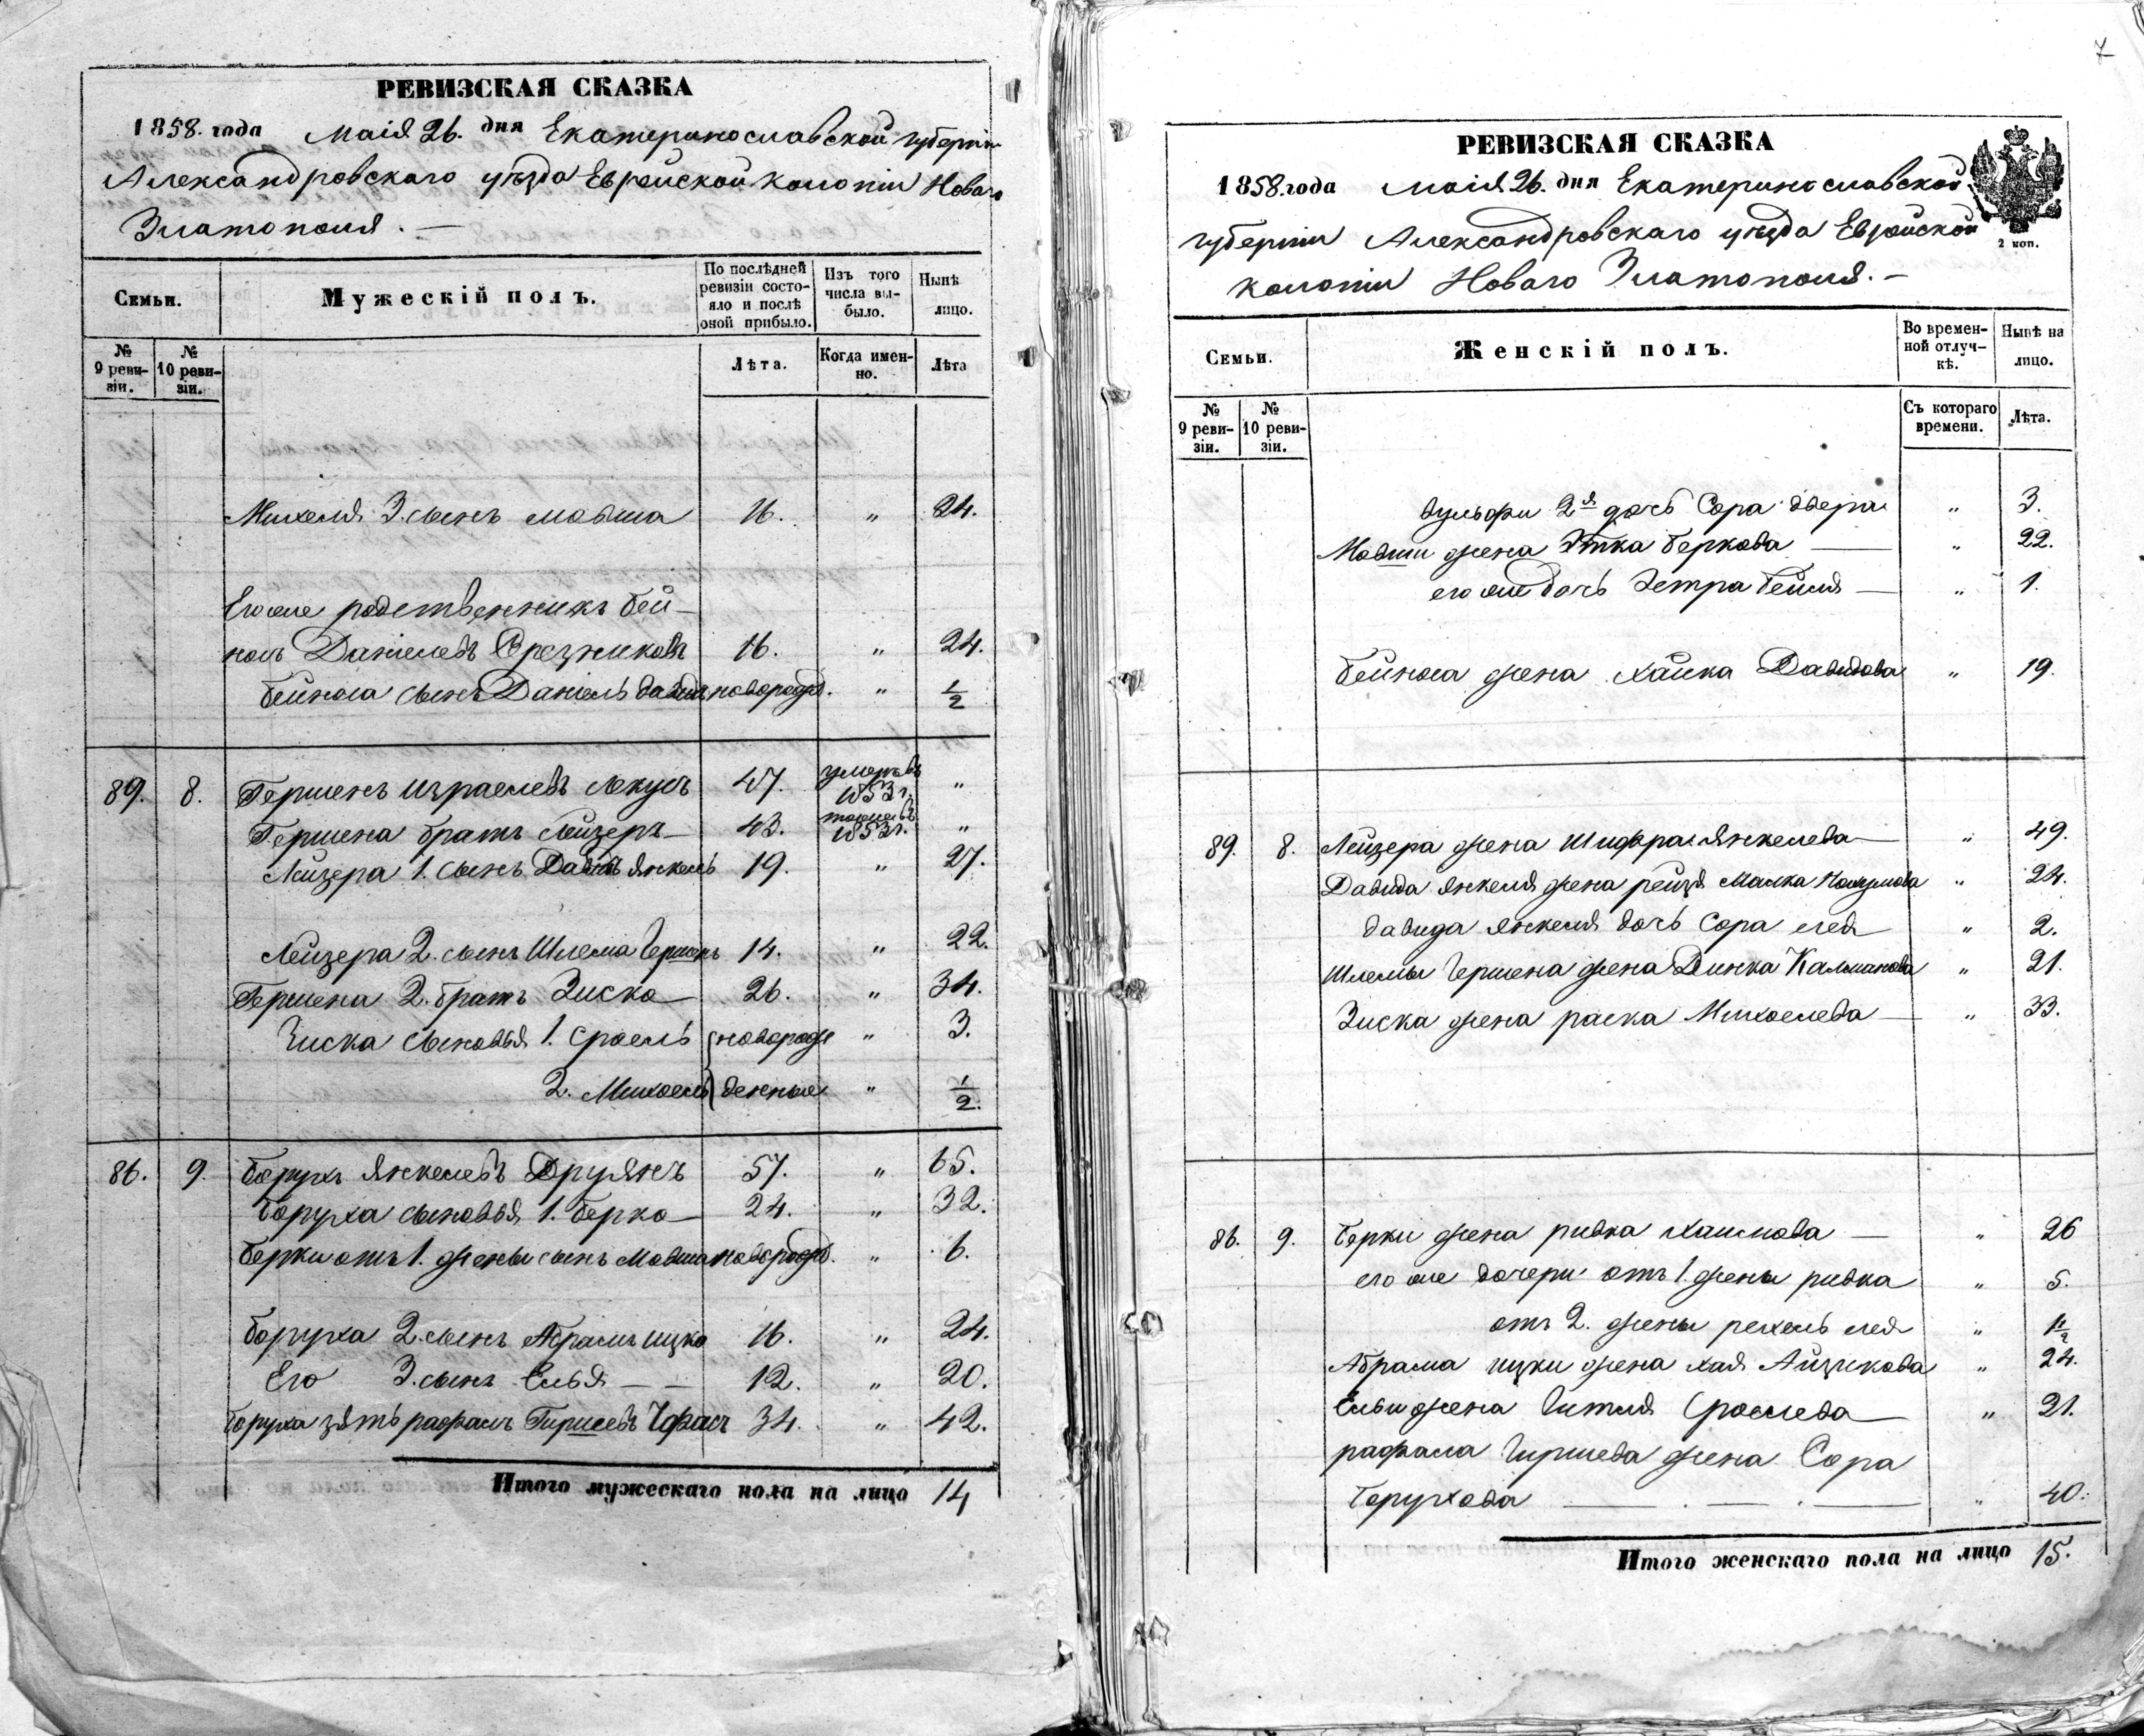 РЕВИЗСКАЯ СКАЗКА
1858. года Маія 26. дня Екатеринославской губерніи
Александровскаго уѣзда Еврейской колоніи Новаго
Златополя. —
Семьи.
Мужескій полъ.
По послѣдней ревизіи состояло и послѣ оной прибыло.
Изъ того числа выбыло.
Нынѣ лицо.
№ 9 ревизіи.
№ 10 ревизіи.
Лѣта.
Когда именно.
Лѣта
Михеля 3. сынъ Мовша 16. " 24.
Его же родственникъ Бей-
носъ Даніелевъ 16. " 24.
Бейноса сынъ Даніель Давидъ новорожд. " 1/2
89. 8. Гершенъ Израелевъ 47. умеръ въ 1853 г. "
Гершена братъ Лейзеръ — 43. тоже въ 1853 г. "
Лейзера 1. сынъ Давидъ Янкель 19. " 27.
Лейзера 2. сынъ Шлема Гершенъ 14. " 22.
Гершена 2. братъ Зиско — 26. " 34.
Зиска сыновья 1. Сроель новорож " 3.
2. Михоель денные " 1/2.
86. 9. Борухъ Янкелевъ Друянъ 57. " 65.
Боруха сыновья 1. Берко — 24. " 32.
Берки отъ 1. жены сынъ Мовша новорожд. " 6.
Боруха 2. сынъ Абрамъ Ицко 16. " 24.
Его 3. сынъ Елья — — 12. " 20.
Боруха зять рафаилъ Гиршевъ 34. " 42.
Итого мужескаго пола на лицо 14
7
РЕВИЗСКАЯ СКАЗКА
1858. года Маія 26. дня Екатеринославской
губерніи Александровскаго уѣзда Еврейской
колоніи Новаго Златополя. —
2 коп.
Семьи.
Женскій полъ.
Во временной отлучкѣ.
Нынѣ на лицо.
№ 9 ревизіи.
№ 10 ревизіи.
Съ котораго времени.
Лѣта.
2я дочь Сора Двера " 3.
Мовши жена Этка Беркова — " 22.
его же дочь Бейля — " 1.
Бейноса жена Хайка Давидова " 19.
89. 8. Лейзера жена Шифра Янкелева — " 49.
Давида Янкеля жена рейзя Малка " 24.
Давида Янкеля дочь Сора лея " 2.
Шлемы Гершена жена Динка Калманова " 21.
Зиска жена раска Михоелева — " 33.
86. 9. Берки жена ривка Хаимова — " 26
его же дочери отъ 1. жены ривка " 5.
отъ 2. жены рехель лея " 1/2
Абрама ицки жена хая Айзикова " 24.
Ельи жена Гитля Сроелева — " 21.
рафаила Гиршева жена Сора
Борухова — . — . — " 40.
Итого женскаго пола на лицо 15.